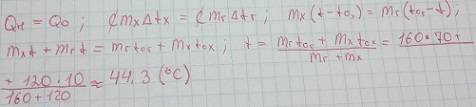 Qп = Qо ; ¢mxΔtx = ¢mгΔtг ; mx(t-t₀ₓ) = mг(t₀г-t),
mxt + mгt = mгt₀г + mxt₀x ; t = (mгt₀г + mxt₀x)/(mг + mx) = 160·70+
(+ 120·10)/(160+120) ≈ 44,3 (°C)